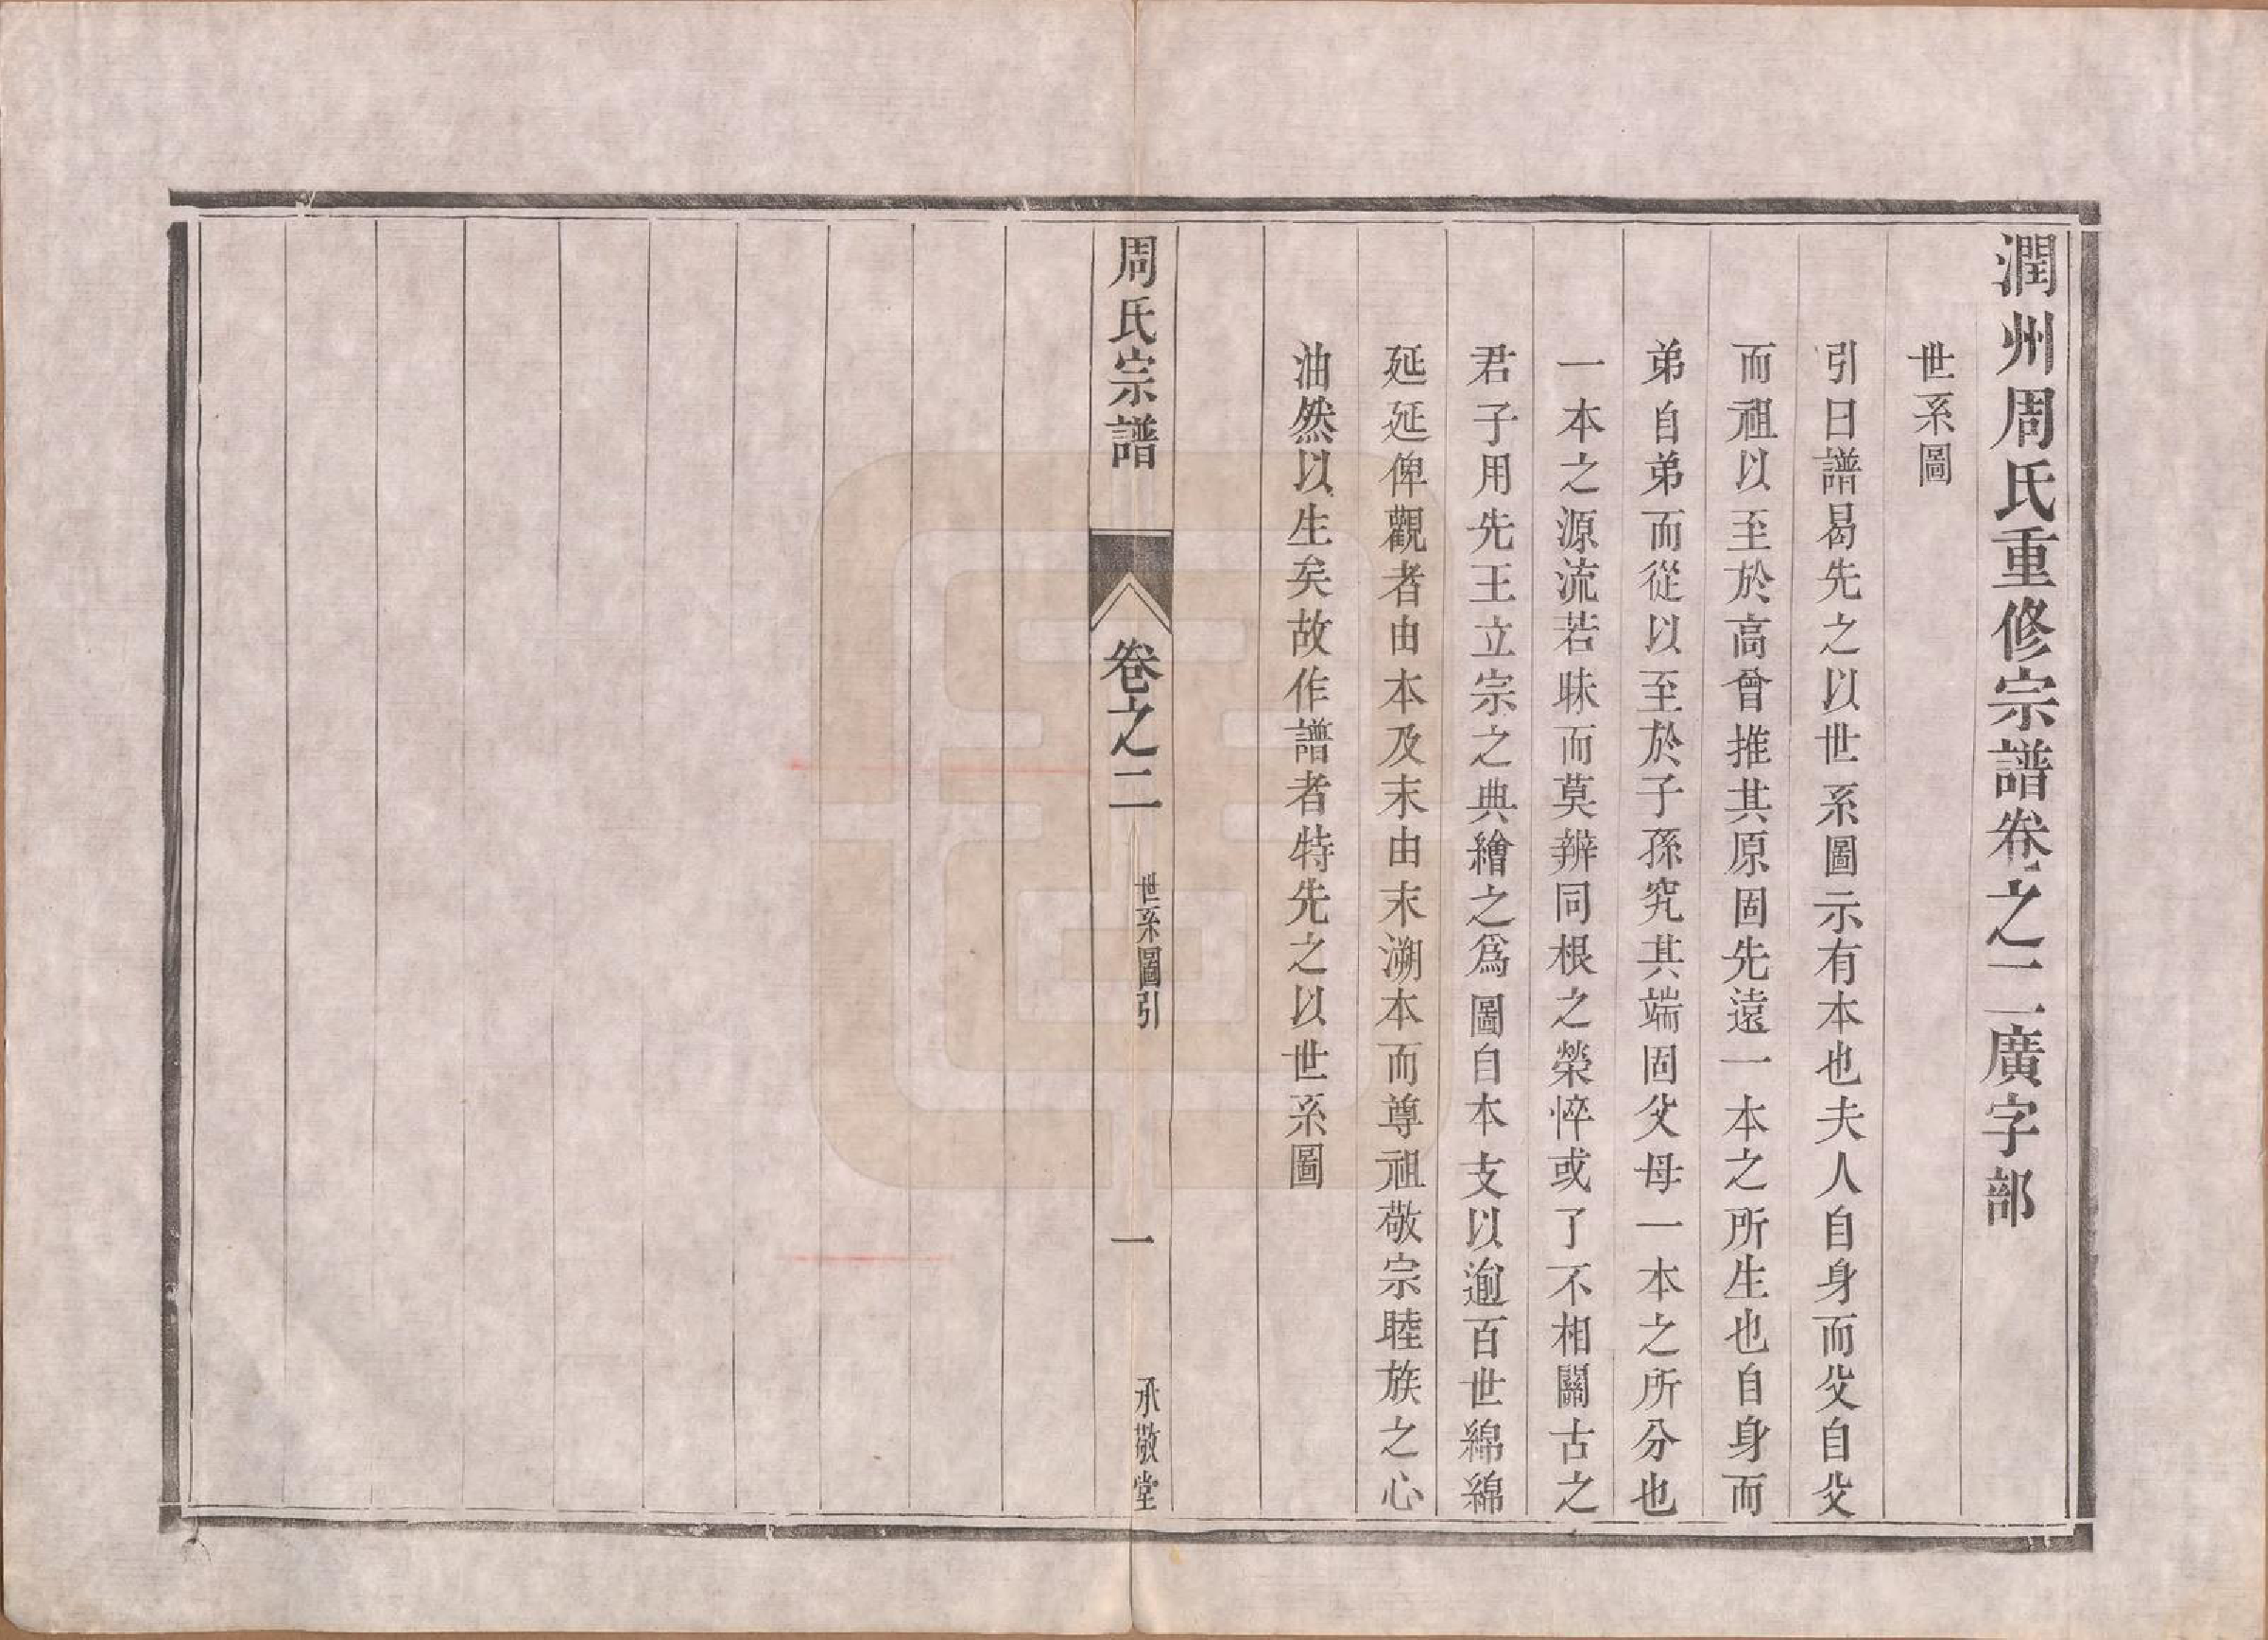 潤州周氏重修宗譜卷之二廣字部
世系圖
引曰譜曷先之以世系圖示有本也夫人自身而父自父
而祖以至於高曾推其原固先遠一本之所生也自身而
弟自弟而從以至於子孫究其端固父母一本之所分也
一本之源流若昧而莫辨同根之榮悴或了不相關古之
君子用先王立宗之典繪之為圖自本支以逾百世綿綿
延延俾觀者由本及末由末溯本而尊祖敬宗睦族之心
油然以生矣故作譜者特先之以世系圖
周氏宗譜
卷之二
世系圖引
一
承敬堂